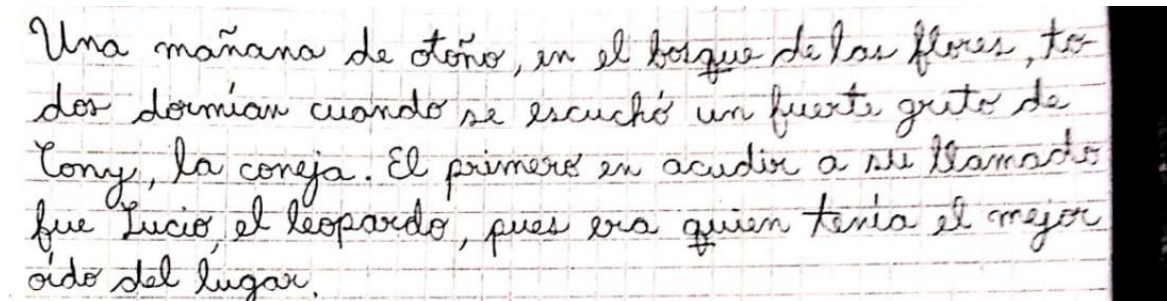 Una mañana de otoño, en el bosque de las flores, to-
dos dormían cuando se escuchó un fuerte grito de
Cony, la coneja. El primero en acudir a su llamado
fue Lucio, el leopardo, pues era quien tenía el mejor
oído del lugar.